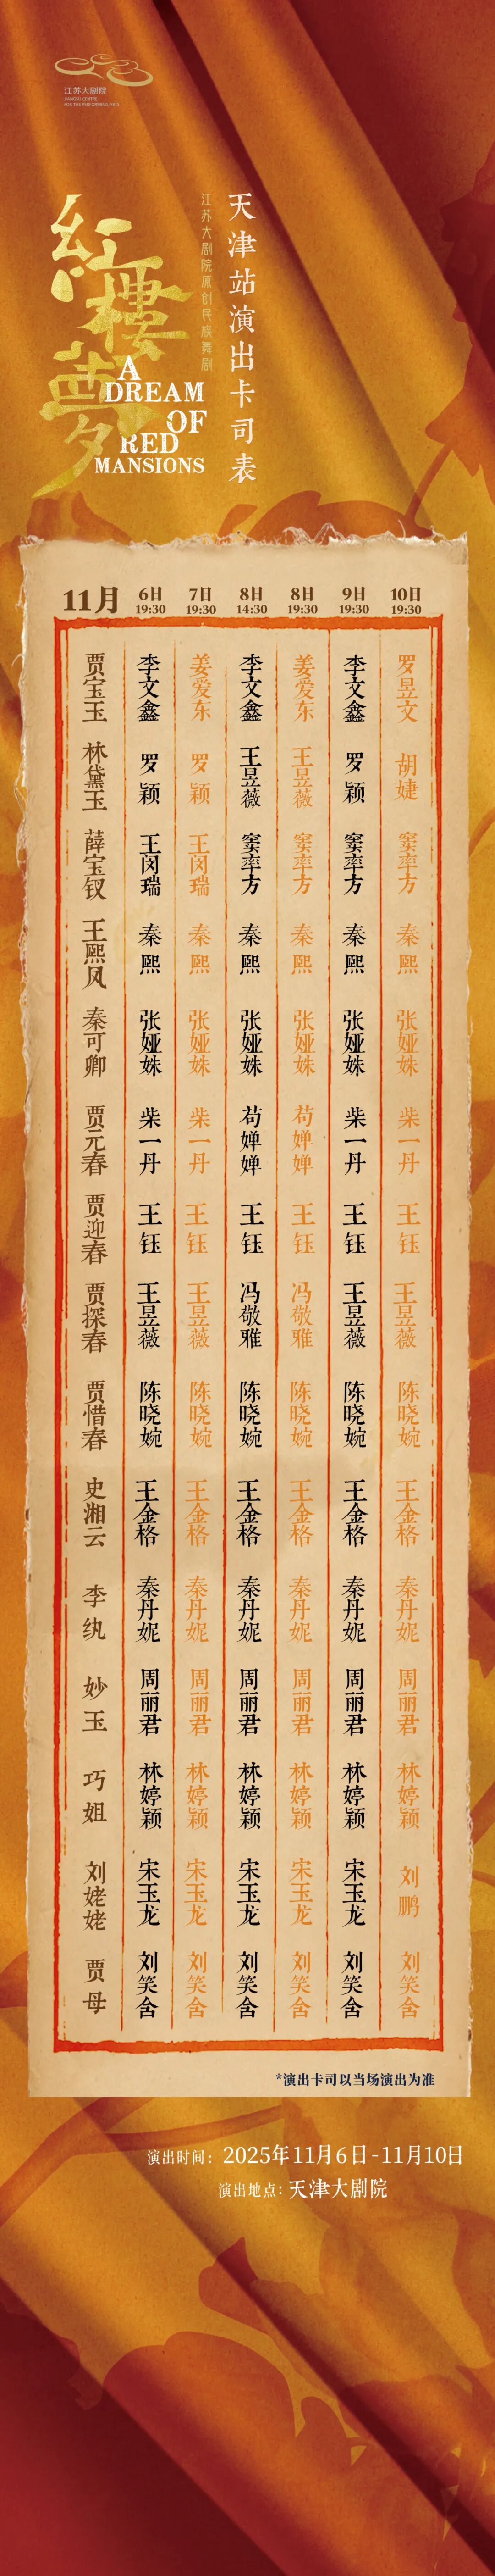 江苏大剧院
JIANGSU CENTRE
FOR THE PERFORMING ARTS
紅樓夢
A
DREAM
OF
RED
MANSIONS
江苏大剧院原创民族舞剧
天津站演出卡司表
11月 6日 7日 8日 8日 9日 10日
19:30 19:30 14:30 19:30 19:30 19:30
贾宝玉 李文鑫 姜爱东 李文鑫 姜爱东 李文鑫 罗昱文
林黛玉 罗颖 罗颖 王昱薇 王昱薇 罗颖 胡婕
薛宝钗 王闵瑞 王闵瑞 窦率方 窦率方 窦率方 窦率方
王熙凤 秦熙 秦熙 秦熙 秦熙 秦熙 秦熙
秦可卿 张娅姝 张娅姝 张娅姝 张娅姝 张娅姝 张娅姝
贾元春 柴一丹 柴一丹 苟婵婵 苟婵婵 柴一丹 柴一丹
贾迎春 王钰 王钰 王钰 王钰 王钰 王钰
贾探春 王昱薇 王昱薇 冯敬雅 冯敬雅 王昱薇 王昱薇
贾惜春 陈晓婉 陈晓婉 陈晓婉 陈晓婉 陈晓婉 陈晓婉
史湘云 王金格 王金格 王金格 王金格 王金格 王金格
李纨 秦丹妮 秦丹妮 秦丹妮 秦丹妮 秦丹妮 秦丹妮
妙玉 周丽君 周丽君 周丽君 周丽君 周丽君 周丽君
巧姐 林婷颖 林婷颖 林婷颖 林婷颖 林婷颖 林婷颖
刘姥姥 宋玉龙 宋玉龙 宋玉龙 宋玉龙 宋玉龙 刘鹏
贾母 刘笑含 刘笑含 刘笑含 刘笑含 刘笑含 刘笑含
*演出卡司以当场演出为准
演出时间：2025年11月6日-11月10日
演出地点：天津大剧院